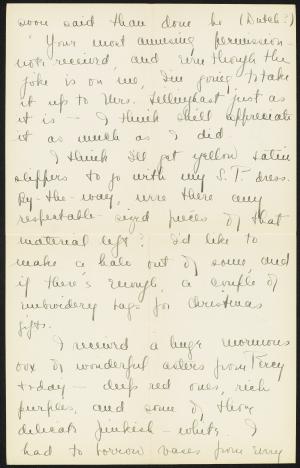 soon said than done be (Dutch?)
Your most amusing permission-
note received, and even though the
joke is on me, I'm going to take
it up to Mrs. Tillinghast just as
it is - I think she'll appreciate
it as much as I did.
I think I'll get yellow satin
slippers to go with my S.T. dress.
By-the-way, were there any
respectable-sized pieces of that
material left? I'd like to
make a halo out of some, and
if there's enough, a couple of
embroidery bags for Christmas
gifts.
I received a huge enormous
box of wonderful asters from Percy
today - deep red ones, rich
purples, and some of those
delicate pinkish-white. I
had to borrow vases from every